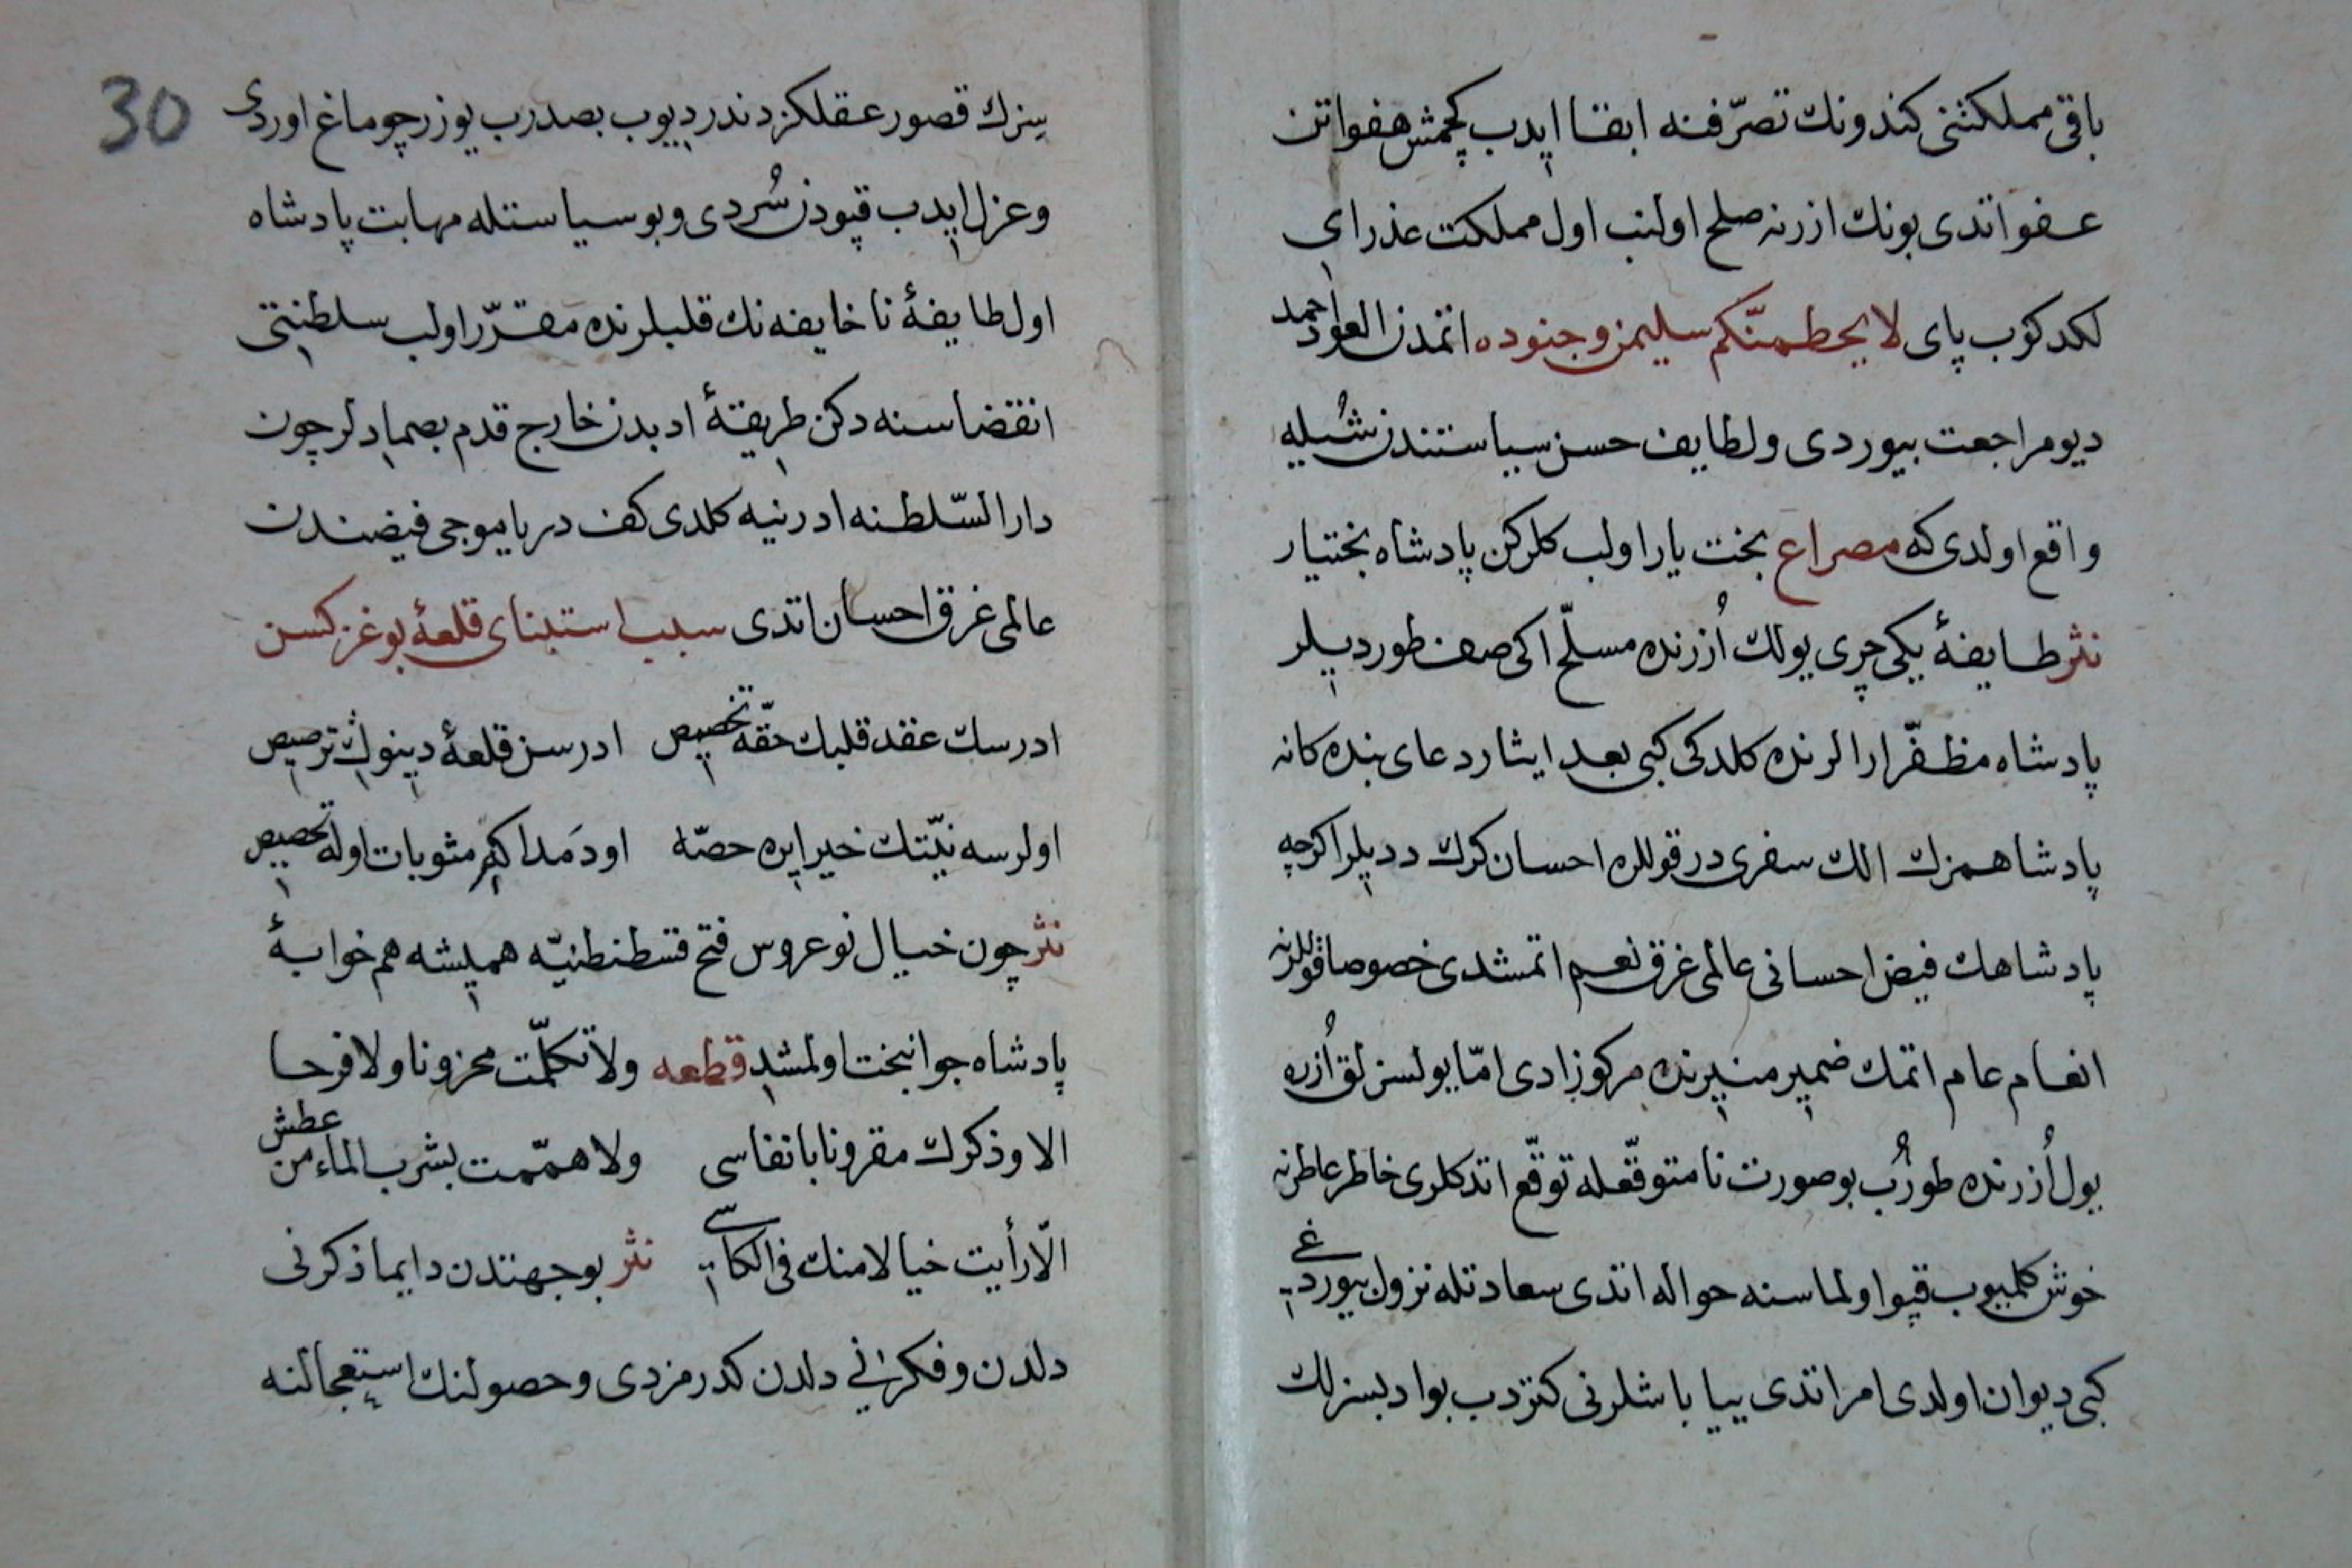 باقی مملکتنی کندونك تصرّفنه ابقا ایدب کچمش هفواتن
عفو اتدی بونك ازرنه صلح اولنب اول مملکت عذرای
لکدکوب پای لا یحطمنّکم سلیمن و جنوده اتمدن العود احمد
دیو مراجعت بیوردی ولطایف حسن سیاستندن شُیله
واقع اولدی که مصراع بخت یار اولب کلرکن پادشاه بختیار
نثر طایفۀ یکی چری یولك اُزرنده مسلّح اکی صف طوردیلر
پادشاه مظفّر ارالرنده کلدکی کبی بعد ایثار دعای بنده کانه
پادشاهمزك الك سفری در قوللره احسان کرك ددیلر اکرچه
پادشاهك فیض احسانی عالمی غرق نعم اتمشدی خصوصا قوللرنه
انعام عام اتمك ضمیر منیرنده مرکوز ادی امّا یولسزلق اُزره
یول اُزرنده طورُب بو صورت نامتوقّعله توقّع اتدکلری خاطر عاطرنه
خوش کلمیوب قپو اولماسنه حواله اتدی سعادتله نزول بیوردغی
کبی دیوان اولدی امر اتدی یبا باشلرنی کتردب بو ادبسزلك
سزك قصور عقلکزدندر دیوب بصدرب یوزر چوماغ اوردی
وعزل ایدب قپودن سُردی وبو سیاستله مهابت پادشاه
اول طایفۀ ناخایفه نك قلبلرنده مقرّر اولب سلطنتی
انقضاسنه دکن طریقۀ ادبدن خارج قدم بصمادلر چون
دار السّلطنه ادرنیه کلدی کف دریا موجی فیضندن
عالمی غرق احسان اتدی سبب استبنای قلعۀ بوغزکسن
ادرسك عقد قلبك حقّه تخصیص ادرسن قلعۀ دینوڭ ترصیص
اولرسه نیّتك خیر ایره حصّه اودَمدا کیم مثوبات اوله تحصیص
نثر چون خیال نوعروس فتح قسطنطنیّه همیشه هم خوابۀ
پادشاه جوانبخت اولمشد قطعه ولا تکلّمت محزونا ولا فرحا
الا وذکرك مقرونا بانفاسی ولا هممت بشرب الماء من عطش
الّا رأیت خیالا منك فی الکاسی نثر بو جهتدن دایما ذکرنی
دلدن وفکرنی دلدن کدرمزدی وحصولنك استعجالنه
30